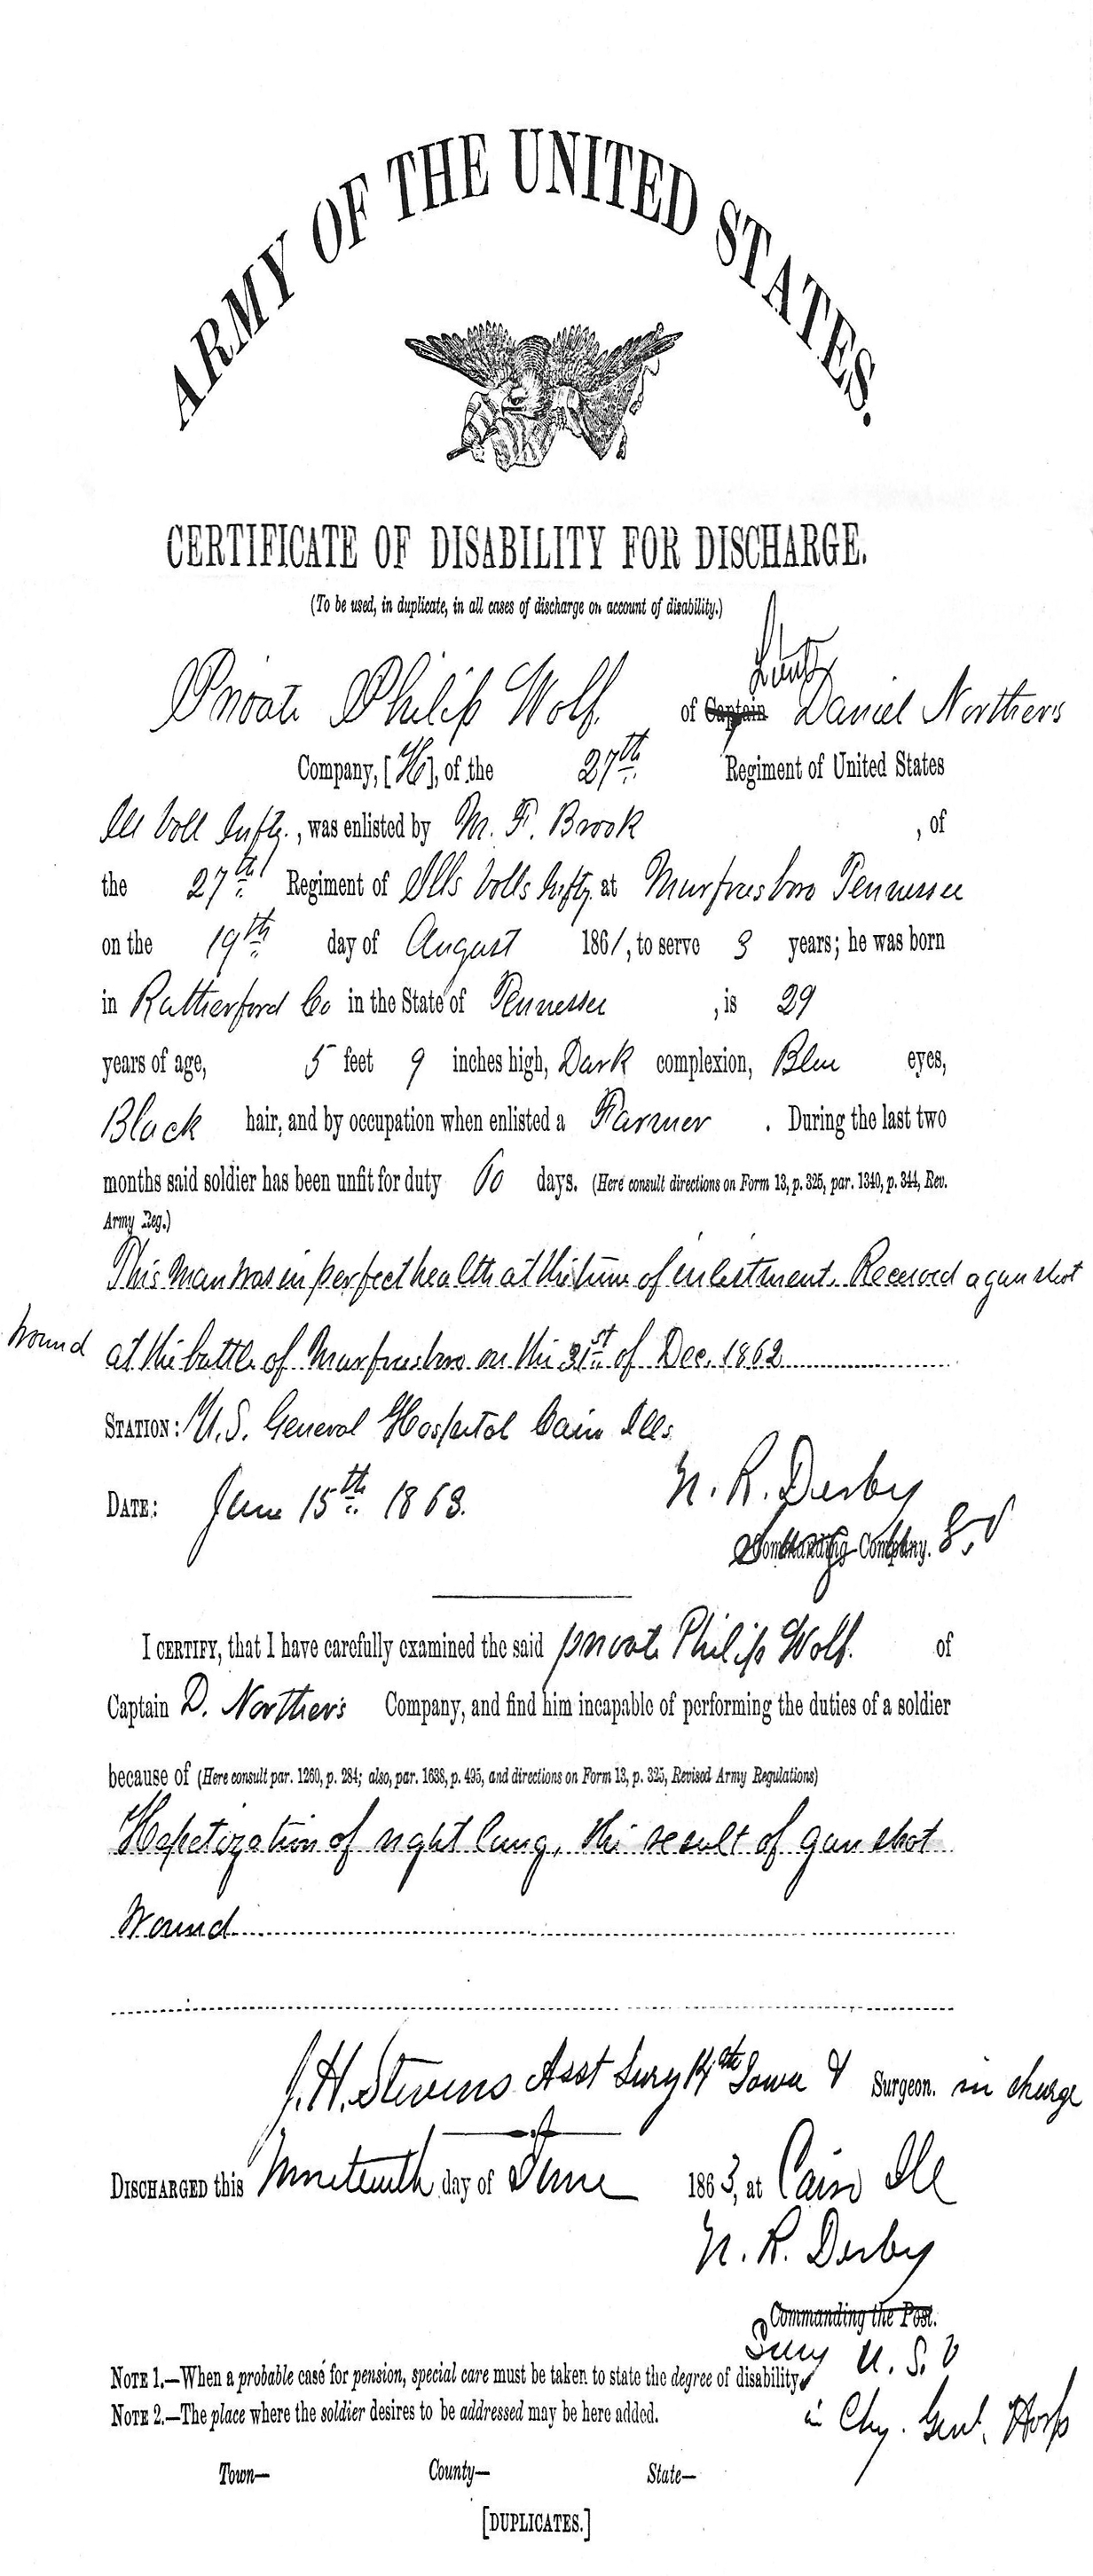 ARMY OF THE UNITED STATES.
CERTIFICATE OF DISABILITY FOR DISCHARGE.
(To be used, in duplicate, in all cases of discharge on account of disability.)
Lieut
Private Philip Wolf. of Captain Daniel Northers
Company, [H], of the 27th Regiment of United States
Ill Voll Infty., was enlisted by M. F. Brook , of
the 27th Regiment of Ills Volls Infty. at Murfresboro Tennessee
on the 19th day of August 1861, to serve 3 years; he was born
in Rutherford Co in the State of Tennessee , is 29
years of age, 5 feet 9 inches high, Dark complexion, Blue eyes,
Black hair, and by occupation when enlisted a Farmer . During the last two
months said soldier has been unfit for duty 60 days. (Here consult directions on Form 13, p. 325, par. 1340, p. 344, Rev.
Army Reg.)
This man was in perfect health at the time of enlistment. Received a gun shot
wound at the battle of Murfresboro on the 31st of Dec. 1862
STATION: U.S. General Hospital Cairo Ills
DATE: June 15th 1863.
N. R. Derby
Commanding Company. Surg U. S. V
I CERTIFY, that I have carefully examined the said private Philip Wolf. of
Captain D. Northers Company, and find him incapable of performing the duties of a soldier
because of (Here consult par. 1260, p. 284; also, par. 1638, p. 495, and directions on Form 13, p. 325, Revised Army Regulations)
Hepetization of right lung, the result of gun shot
Wound
J. H. Stevens Asst Surg 14th Iowa V Surgeon. in charge
DISCHARGED this Nineteenth day of June 1863, at Cairo Ill
N. R. Derby
Commanding the Post.
Surg U. S. V
NOTE 1.—When a probable case for pension, special care must be taken to state the degree of disability.
NOTE 2.—The place where the soldier desires to be addressed may be here added.
in Chg. Genl. Hosp
Town— County— State—
[DUPLICATES.]